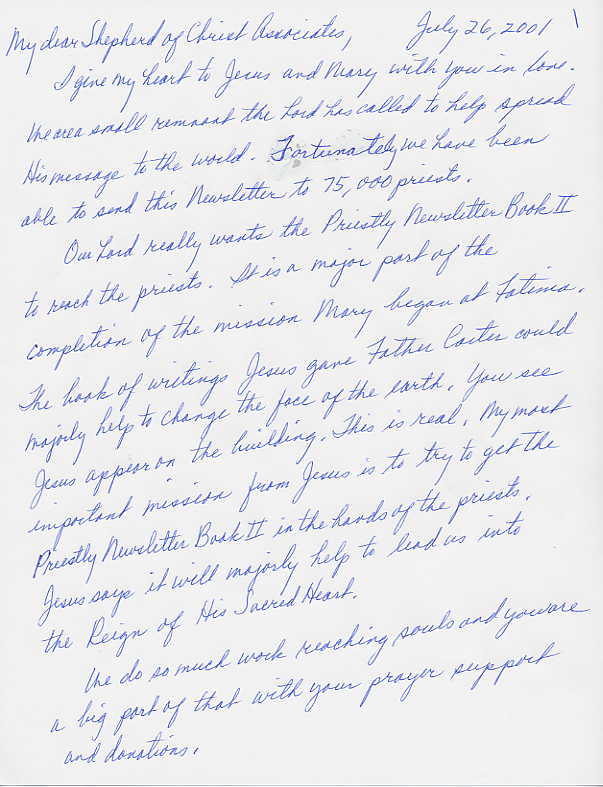 July 26, 2001 1
My dear Shepherd of Christ Associates,
I give my heart to Jesus and Mary with you in love.
We are a small remnant the Lord has called to help spread
His message to the world. Fortunately we have been
able to send this Newsletter to 75,000 priests.
Our Lord really wants the Priestly Newsletter Book II
to reach the priests. It is a major part of the
completion of the mission Mary began at Fatima.
The book of writings Jesus gave Father Carter could
majorly help to change the face of the earth. You see
Jesus appear on the building. This is real. My most
important mission from Jesus is to try to get the
Priestly Newsletter Book II in the hands of the priests.
Jesus says it will majorly help to lead us into
the Reign of His Sacred Heart.
We do so much work reaching souls and you are
a big part of that with your prayer support
and donations.